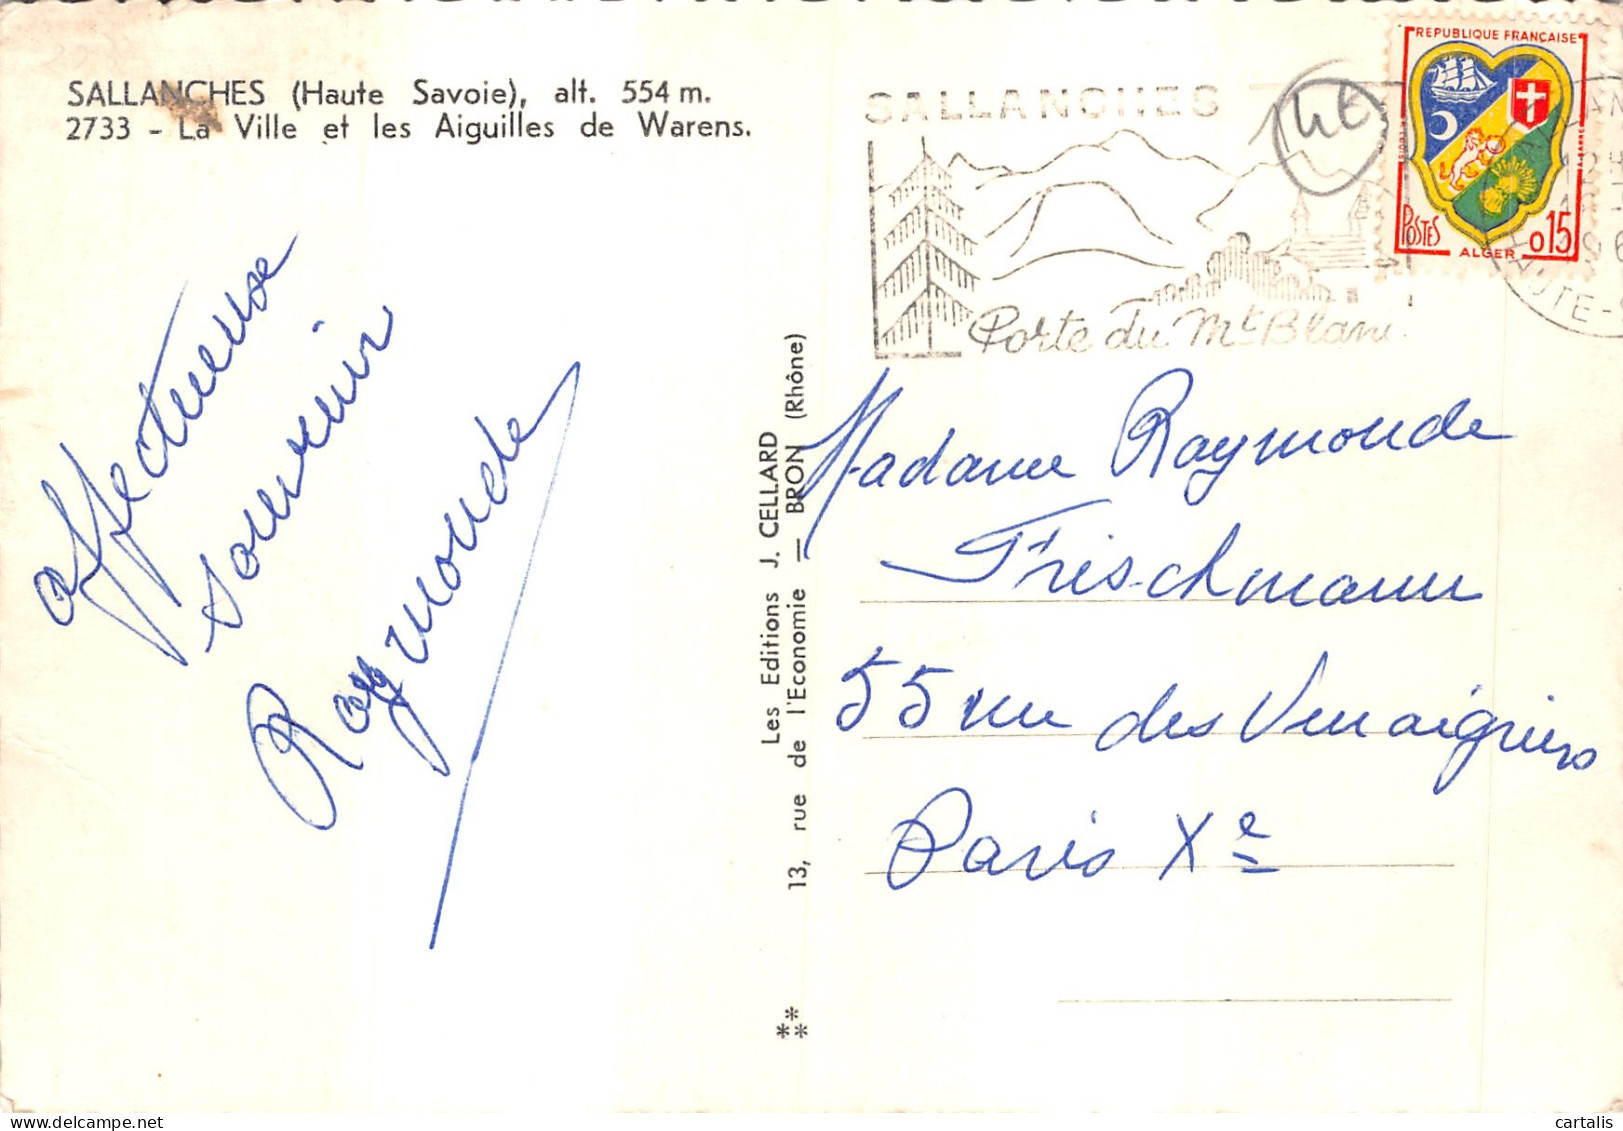 SALLANCHES (Haute Savoie), alt. 554 m.
2733 - La Ville et les Aiguilles de Warens.
affectueuse
souvenir
Raymonde
Les Editions J. CELLARD
13, rue de l'Economie = BRON (Rhône)
SALLANCHES
Porte du Mt Blanc
REPUBLIQUE FRANÇAISE
POSTES
ALGER
0,15
HAUTE-
Madame Raymonde
Frischmann
55 rue des Vinaigriers
Paris Xe
cartalis